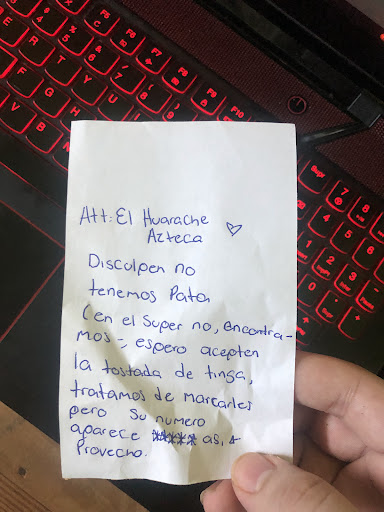 Att: El Huarache
Azteca
Disculpen no
tenemos Pata
(en el Super no, encontra-
mos - espero acepten
la tostada de tinga,
tratamos de marcarles
pero su numero
aparece ***** as,
Provecho.